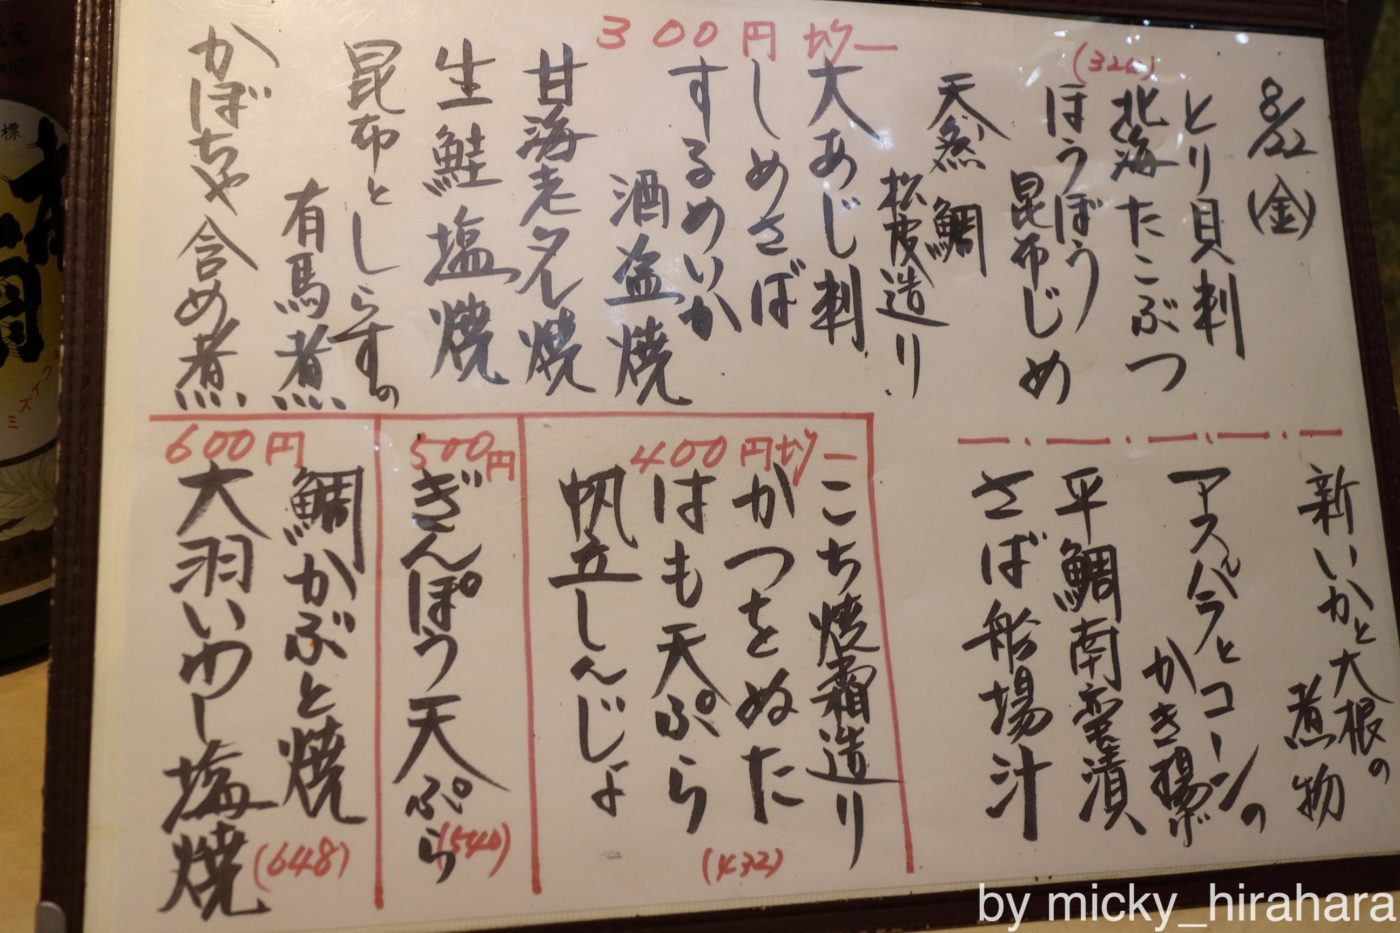 8/22(金)
300円均一
(324)
とり貝刺
北海たこぶつ
ほうぼう
昆布じめ
天然鯛
松皮造り
大あじ刺
しめさば
するめいか
酒盗焼
甘海老タレ焼
生鮭塩焼
昆布としらすの
有馬煮
かぼちゃ含め煮
新いかと大根の
煮物
アスパラとコーンの
かき揚げ
平鯛南蛮漬
さば船場汁
400円均一
こち焼霜造り
かつをぬた
はも天ぷら
帆立しんじょ
(432)
500円
ぎんぽう天ぷら
(540)
600円
鯛かぶと焼
大羽いわし塩焼
(648)
標
by micky_hirahara